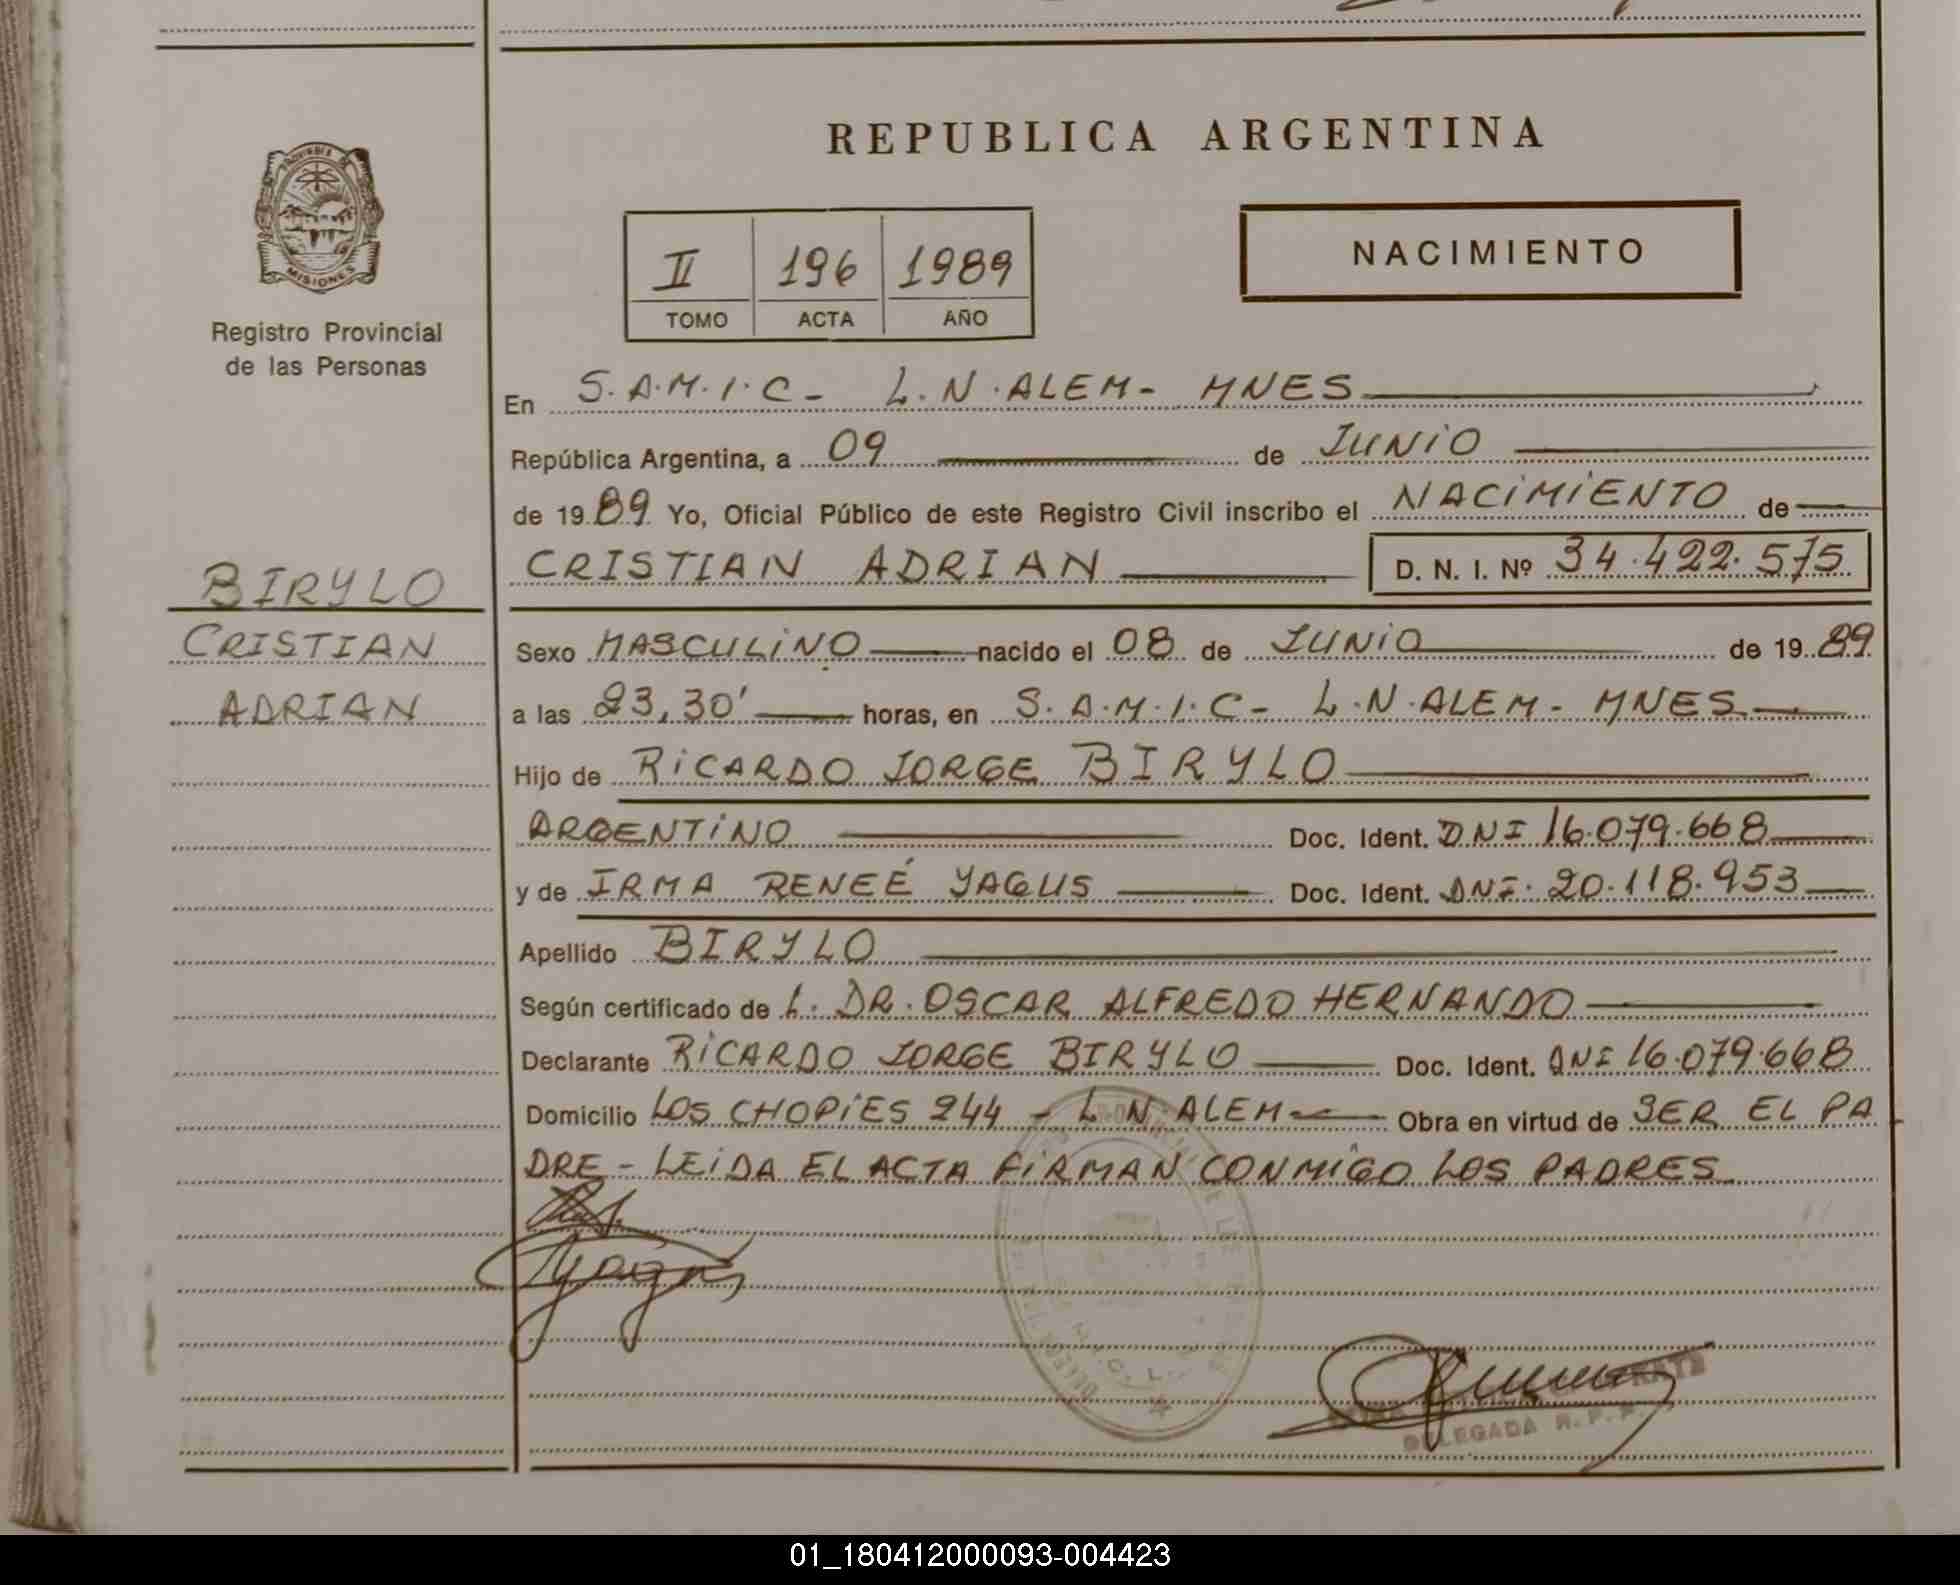 REPUBLICA ARGENTINA
PROVINCIA DE
MISIONES
Registro Provincial
de las Personas
II 196 1989
TOMO ACTA AÑO
NACIMIENTO
En S.A.M.I.C- L.N.ALEM- MNES
República Argentina, a 09 de JUNIO
de 1989 Yo, Oficial Público de este Registro Civil inscribo el NACIMIENTO de
CRISTIAN ADRIAN D. N. I. Nº 34.422.575
BIRYLO
CRISTIAN
ADRIAN
Sexo MASCULINO nacido el 08 de JUNIO de 1989
a las 23,30' horas, en S.A.M.I.C- L.N.ALEM- MNES
Hijo de RICARDO JORGE BIRYLO
ARGENTINO Doc. Ident. DNI 16.079.668
y de IRMA RENEÉ YAGUS Doc. Ident. DNI. 20.118.953
Apellido BIRYLO
Según certificado de L. DR. OSCAR ALFREDO HERNANDO
Declarante RICARDO JORGE BIRYLO Doc. Ident. DNI 16.079.668
Domicilio LOS CHOPIES 244 - L N ALEM Obra en virtud de SER EL PA
DRE - LEIDA EL ACTA FIRMAN CONMIGO LOS PADRES
DELEGADA R.P.P.
01_180412000093-004423